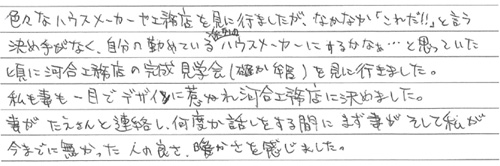 色々なハウスメーカーや工務店を見に行きましたが、なかなか「これだ!!」と言う
決め手がなく、自分の勤めているハウスメーカーにするかなぁ…と思っていた
頃に河合工務店の完成見学会(確か 邸)を見に行きました。
私も妻も一目でデザインに惹かれ河合工務店に決めました。
妻がたえさんと連絡し、何度か話しをする間にまず妻が そして私が
今までに無かった人の良さ、暖かさを感じました。